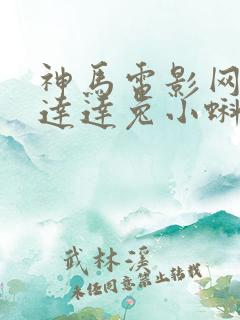 神马电影网
达达兔小蝌
武林溪
未经同意禁止转载